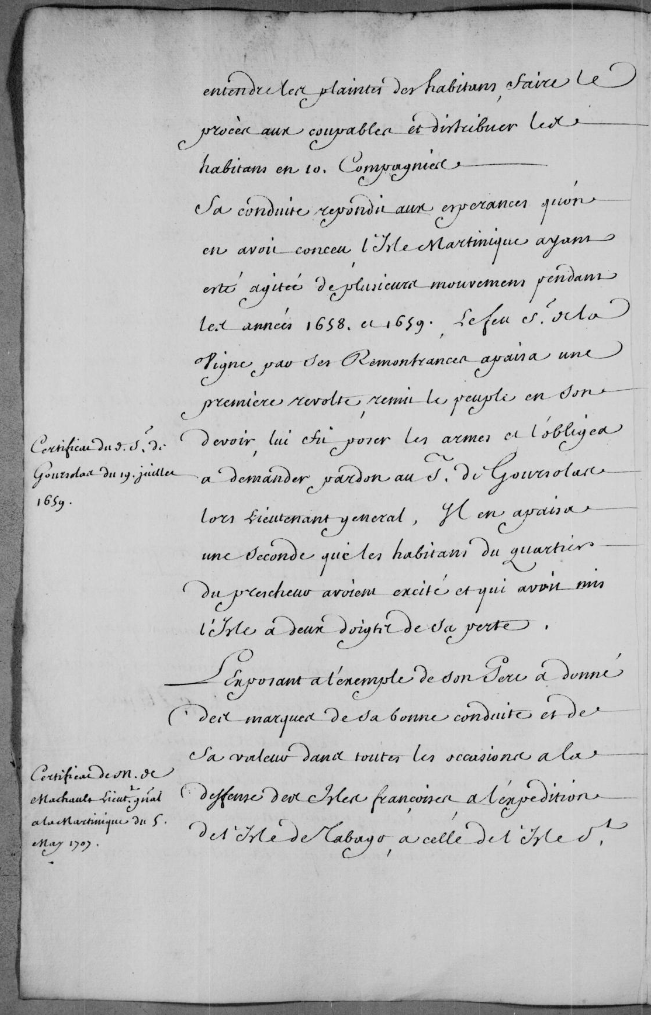 entendre les plaintes des habitans, faire le
procès aux coupables et distribuer les
habitans en 10. Compagnies
Sa conduite repondit aux esperances qu'on
en avoit conceu l'Isle Martinique ayant
esté agitée de plusieurs mouvemens pendant
les années 1658. et 1659. Le feu S.r de la
Vigne par ses Remontrances apaisa une
première revolte, remit le peuple en son
Certificat du d. S.r de
Goursolas du 19. juillet
1659.
devoir, lui fit poser les armes et l'obligea
a demander pardon au S.r de Goursolas
lors Lieutenant general, Il en apaisa
une seconde que les habitans du quartier
du prescheur avoient excité et qui avoit mis
l'Isle a deux doigts de sa perte.
L'Exposant a l'exemple de son Pere a donné
des marques de sa bonne conduite et de
Certificat de M. de
Machault Lieut.t gñal
a la Martinique du 5.
May 1707.
sa valeur dans toutes les occasions a la
deffense des Isles françoises a l'expedition
de l'Isle de Tabago, a celle de l'Isle S.t